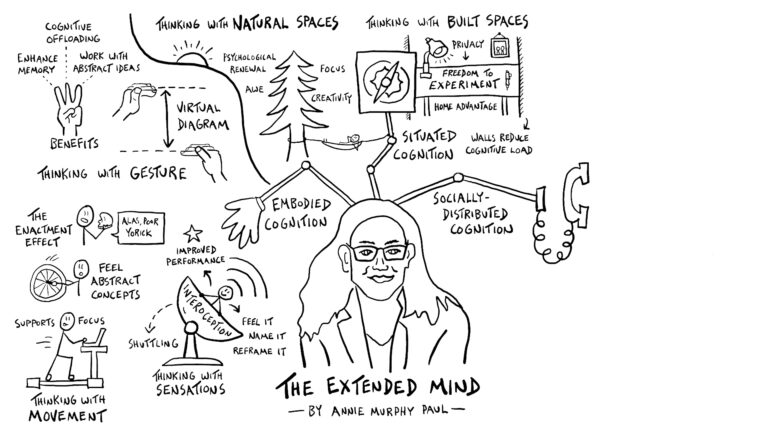 COGNITIVE
OFFLOADING
ENHANCE
MEMORY
WORK WITH
ABSTRACT IDEAS
BENEFITS
VIRTUAL
DIAGRAM
THINKING WITH GESTURE
THINKING WITH NATURAL SPACES
PSYCHOLOGICAL
RENEWAL
AWE
FOCUS
CREATIVITY
THINKING WITH BUILT SPACES
PRIVACY
FREEDOM TO
EXPERIMENT
HOME ADVANTAGE
WALLS REDUCE
COGNITIVE LOAD
SITUATED
COGNITION
EMBODIED
COGNITION
SOCIALLY-
DISTRIBUTED
COGNITION
THE
ENACTMENT
EFFECT
ALAS, POOR
YORICK
FEEL
ABSTRACT
CONCEPTS
SUPPORTS FOCUS
THINKING WITH
MOVEMENT
IMPROVED
PERFORMANCE
INTEROCEPTION
SHUTTLING
FEEL IT
NAME IT
REFRAME IT
THINKING WITH
SENSATIONS
THE EXTENDED MIND
— BY ANNIE MURPHY PAUL —